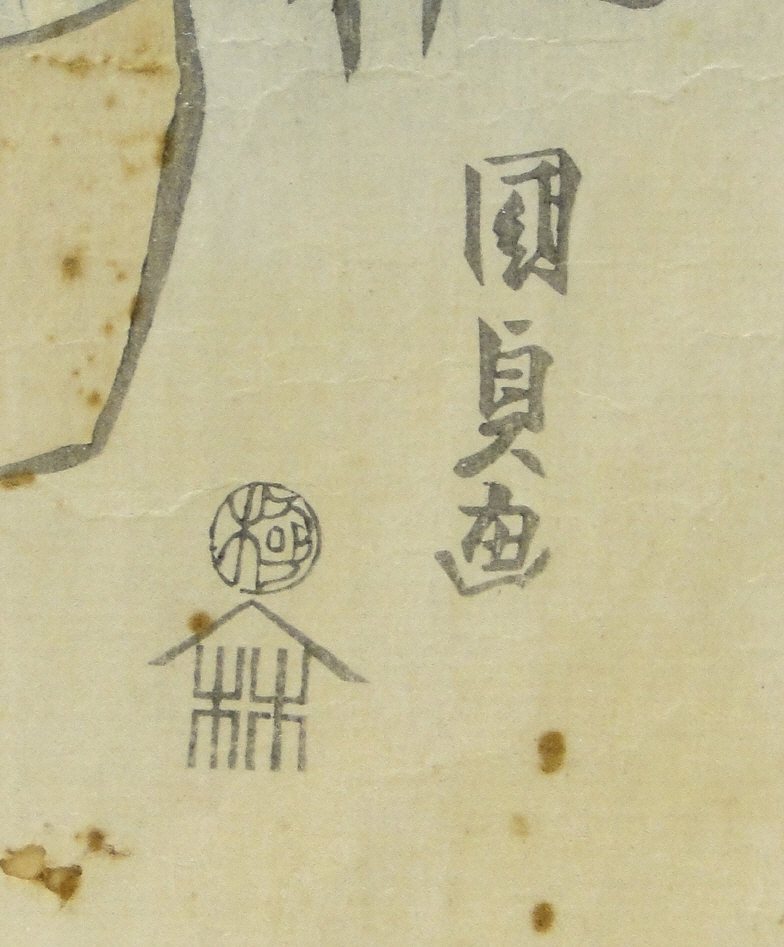 國貞画
極
林